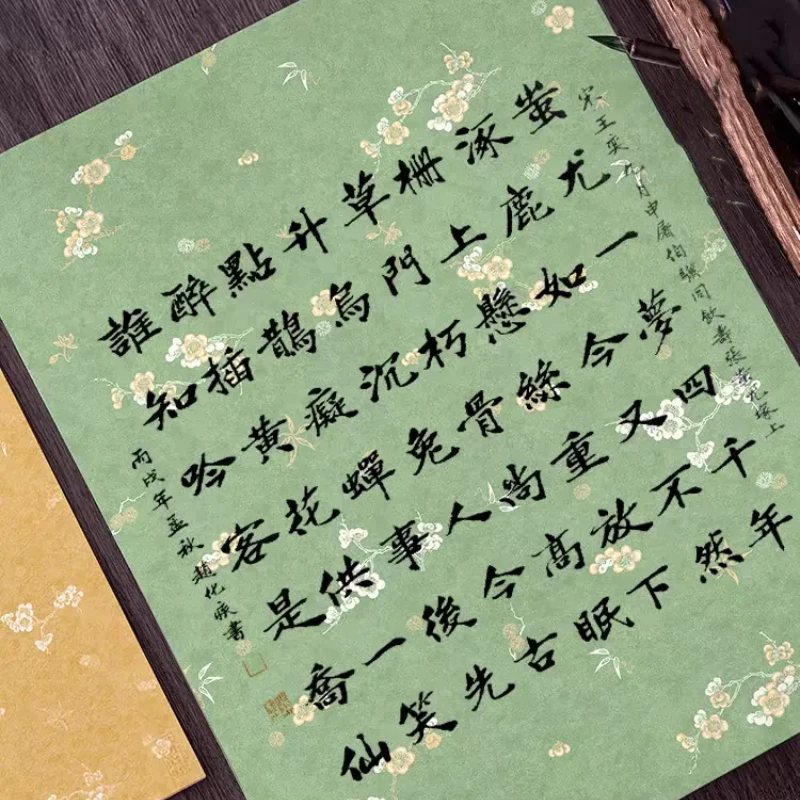 宋王奕九月申屠伯騏同飲壽張蚩尤塚上
蚩尤一夢四千年
涿鹿如今又不然
柵上懸絲重放下
草門朽骨尚高眠
升烏沉兔人今古
點鵲癡蟬事後先
醉插黃花供一笑
誰知吟客是喬仙
丙戌年孟秋趙化書